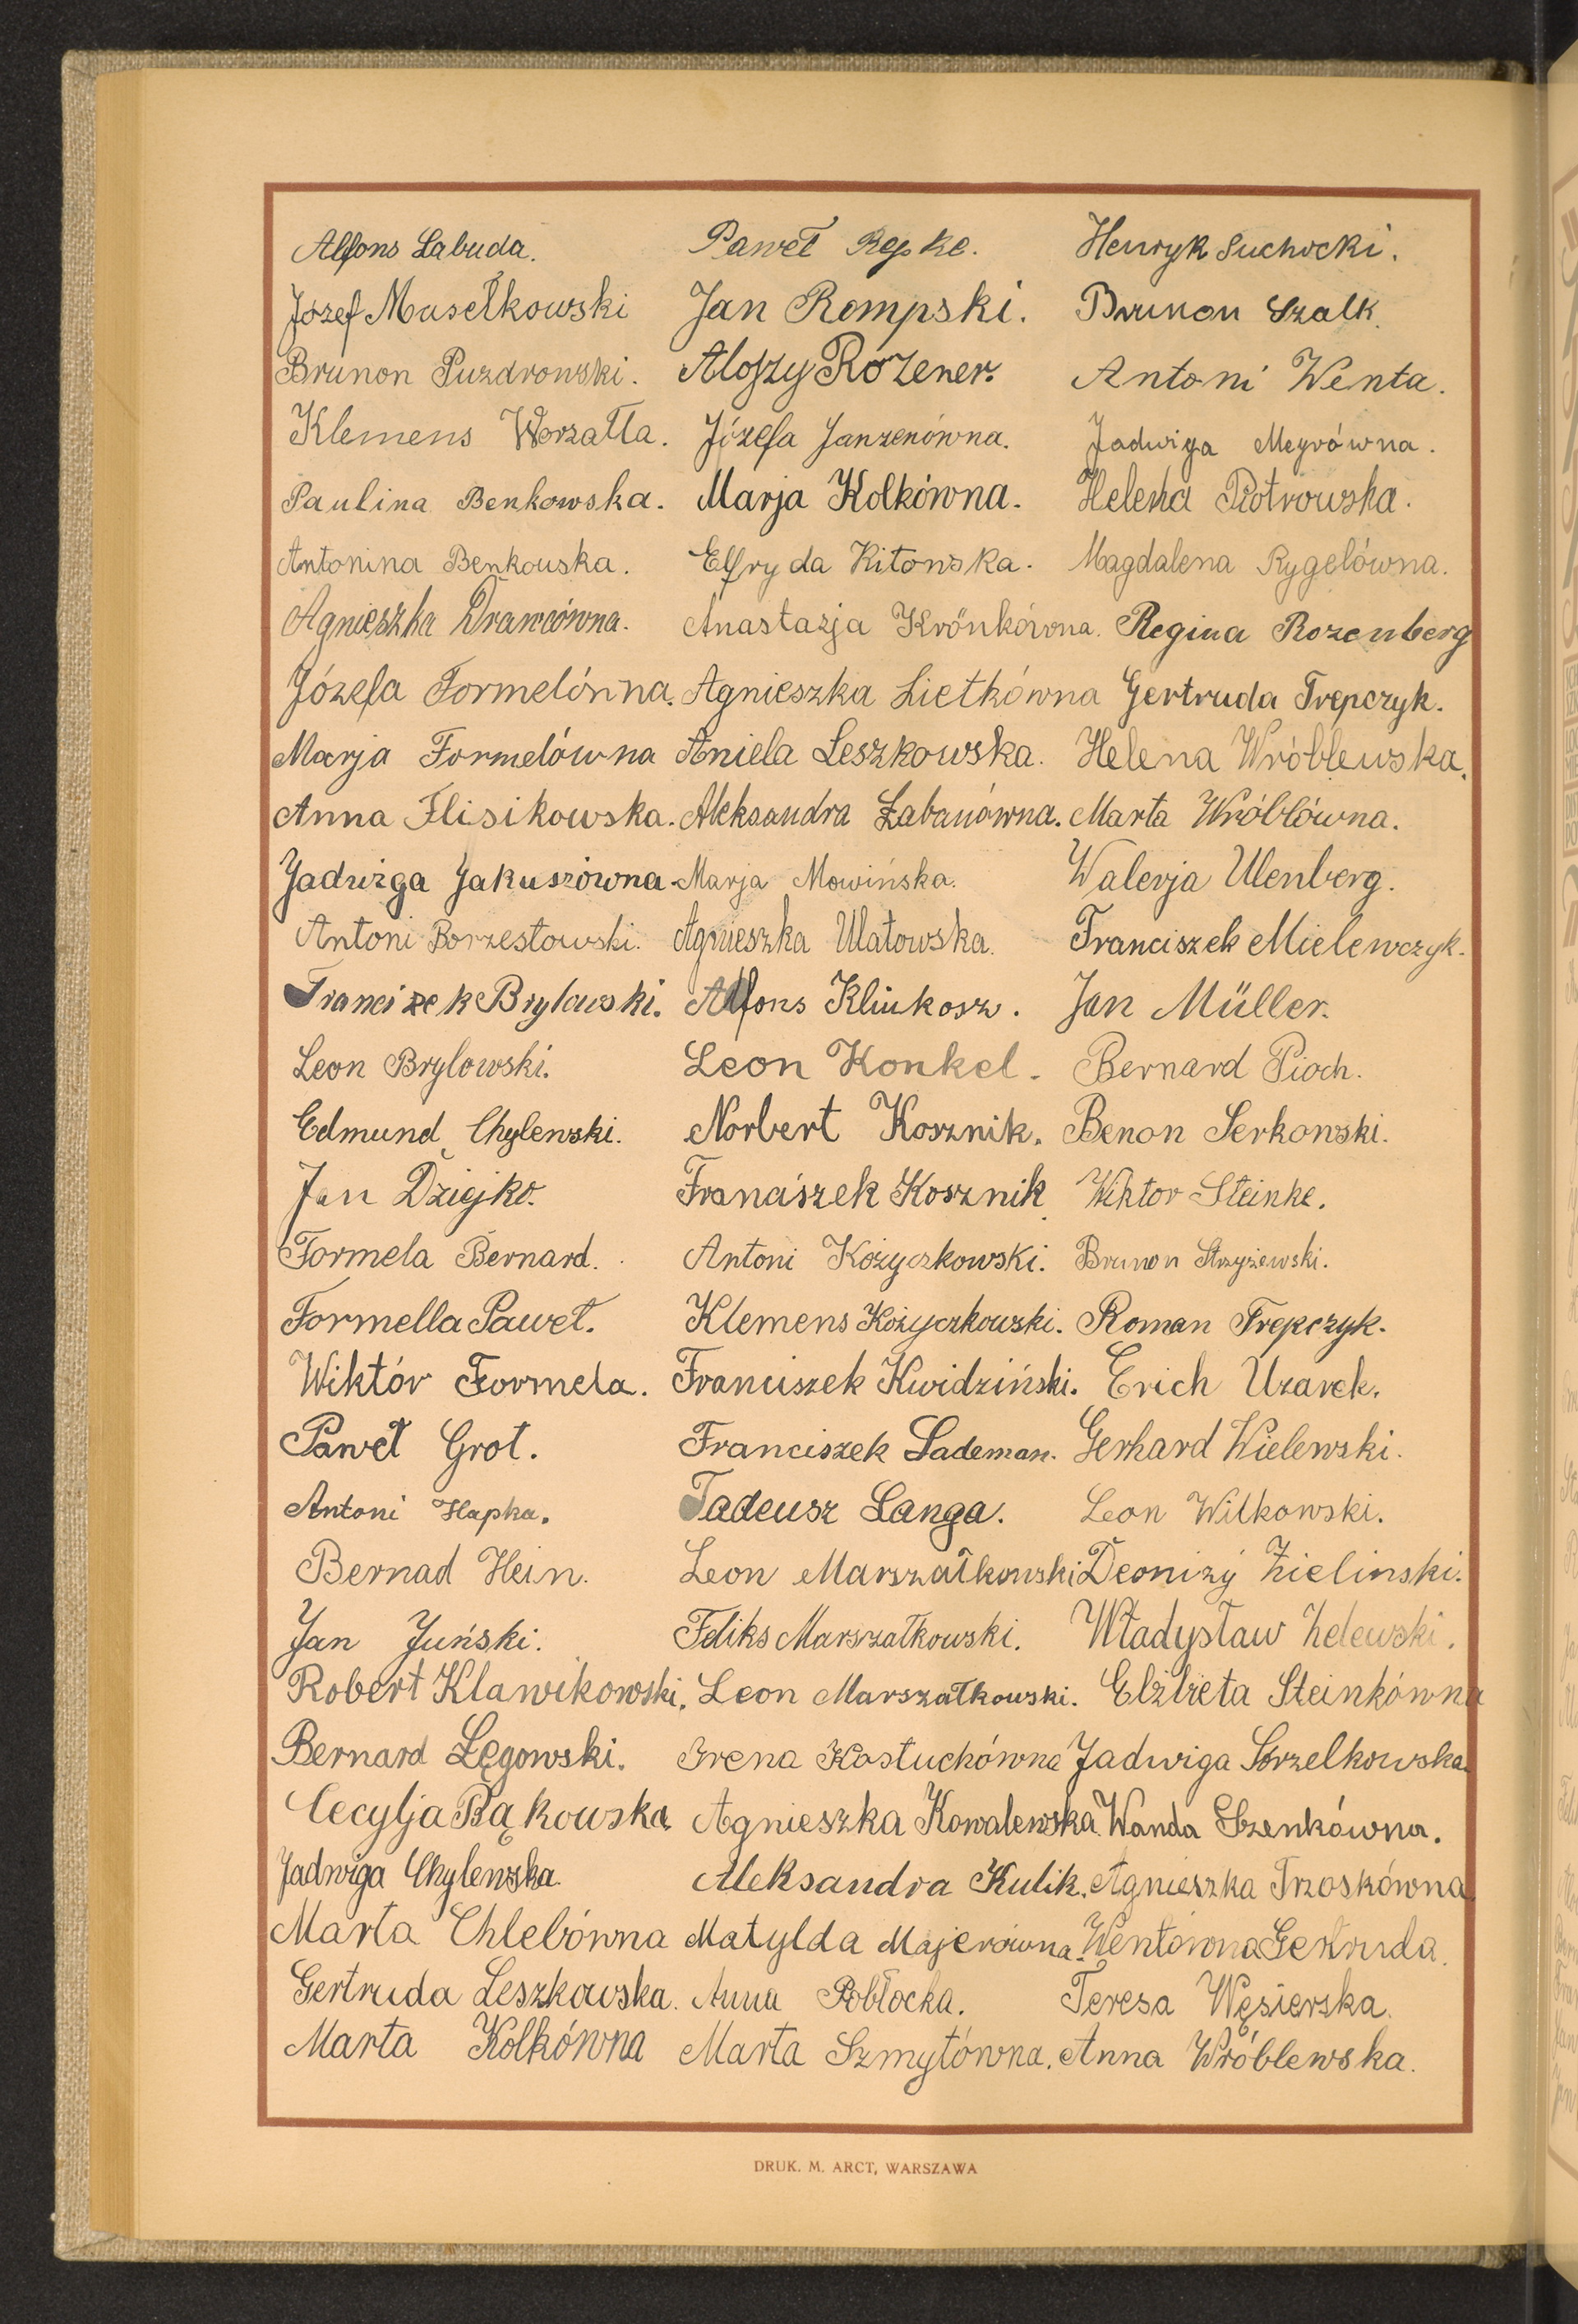 Alfons Labuda. Paweł Repke. Henryk Suchocki.
Józef Masełkowski Jan Rompski. Brunon Szalk.
Brunon Puzdrowski. Alojzy Rozener. Antoni Wenta.
Klemens Worzałła. Józefa Janzenówna. Jadwiga Meyrówna.
Paulina Benkowska. Marja Kolkówna. Helena Piotrowska.
Antonina Benkowska. Elfryda Kitowska. Magdalena Rygelówna.
Agnieszka Drawcówna. Anastazja Krönkówna. Regina Rozenberg
Józefa Formelówna. Agnieszka Lietkówna Gertruda Trepczyk.
Marja Formelówna Aniela Leszkowska. Helena Wróblewska.
Anna Flisikowska. Aleksandra Labanówna. Marta Wróblówna.
Jadwiga Jakuszówna. Marja Mowińska. Walerja Ulenberg.
Antoni Borzestowski. Agnieszka Ulatowska. Franciszek Mielewczyk.
Francizek Brylowski. Alfons Klinkosz. Jan Müller.
Leon Brylowski. Leon Konkel. Bernard Pioch.
Edmund Chylewski. Norbert Kosznik. Benon Serkowski.
Jan Dziejko. Franciszek Kosznik Wiktor Steinke.
Formela Bernard. Antoni Kożyczkowski. Brunon Strzyżewski.
Formella Paweł. Klemens Kożyczkowski. Roman Trepczyk.
Wiktór Formela. Franciszek Kwidziński. Erich Uzarek.
Paweł Grot. Franciszek Lademan. Gerhard Wielewski.
Antoni Hapka. Tadeusz Langa. Leon Wilkowski.
Bernad Hein. Leon Marszałkowski Deonizy Zielinski.
Jan Juński. Feliks Marszałkowski. Władysław Zelewski.
Robert Klawikowski. Leon Marszałkowski. Elżbieta Steinkówna
Bernard Lęgowski. Irena Kostuchówna Jadwiga Sorzelkowska.
Cecylja Bąkowska Agnieszka Kowalewska. Wanda Szenkówna.
Jadwiga Chylewska. Aleksandra Kulik. Agnieszka Trzoskówna
Marta Chlebówna Matylda Majerówna. Wentówna Gertruda.
Gertruda Leszkowska. Anna Pobłocka. Teresa Węsierska.
Marta Kolkówna Marta Szmytówna. Anna Wróblewska.
DRUK. M. ARCT, WARSZAWA